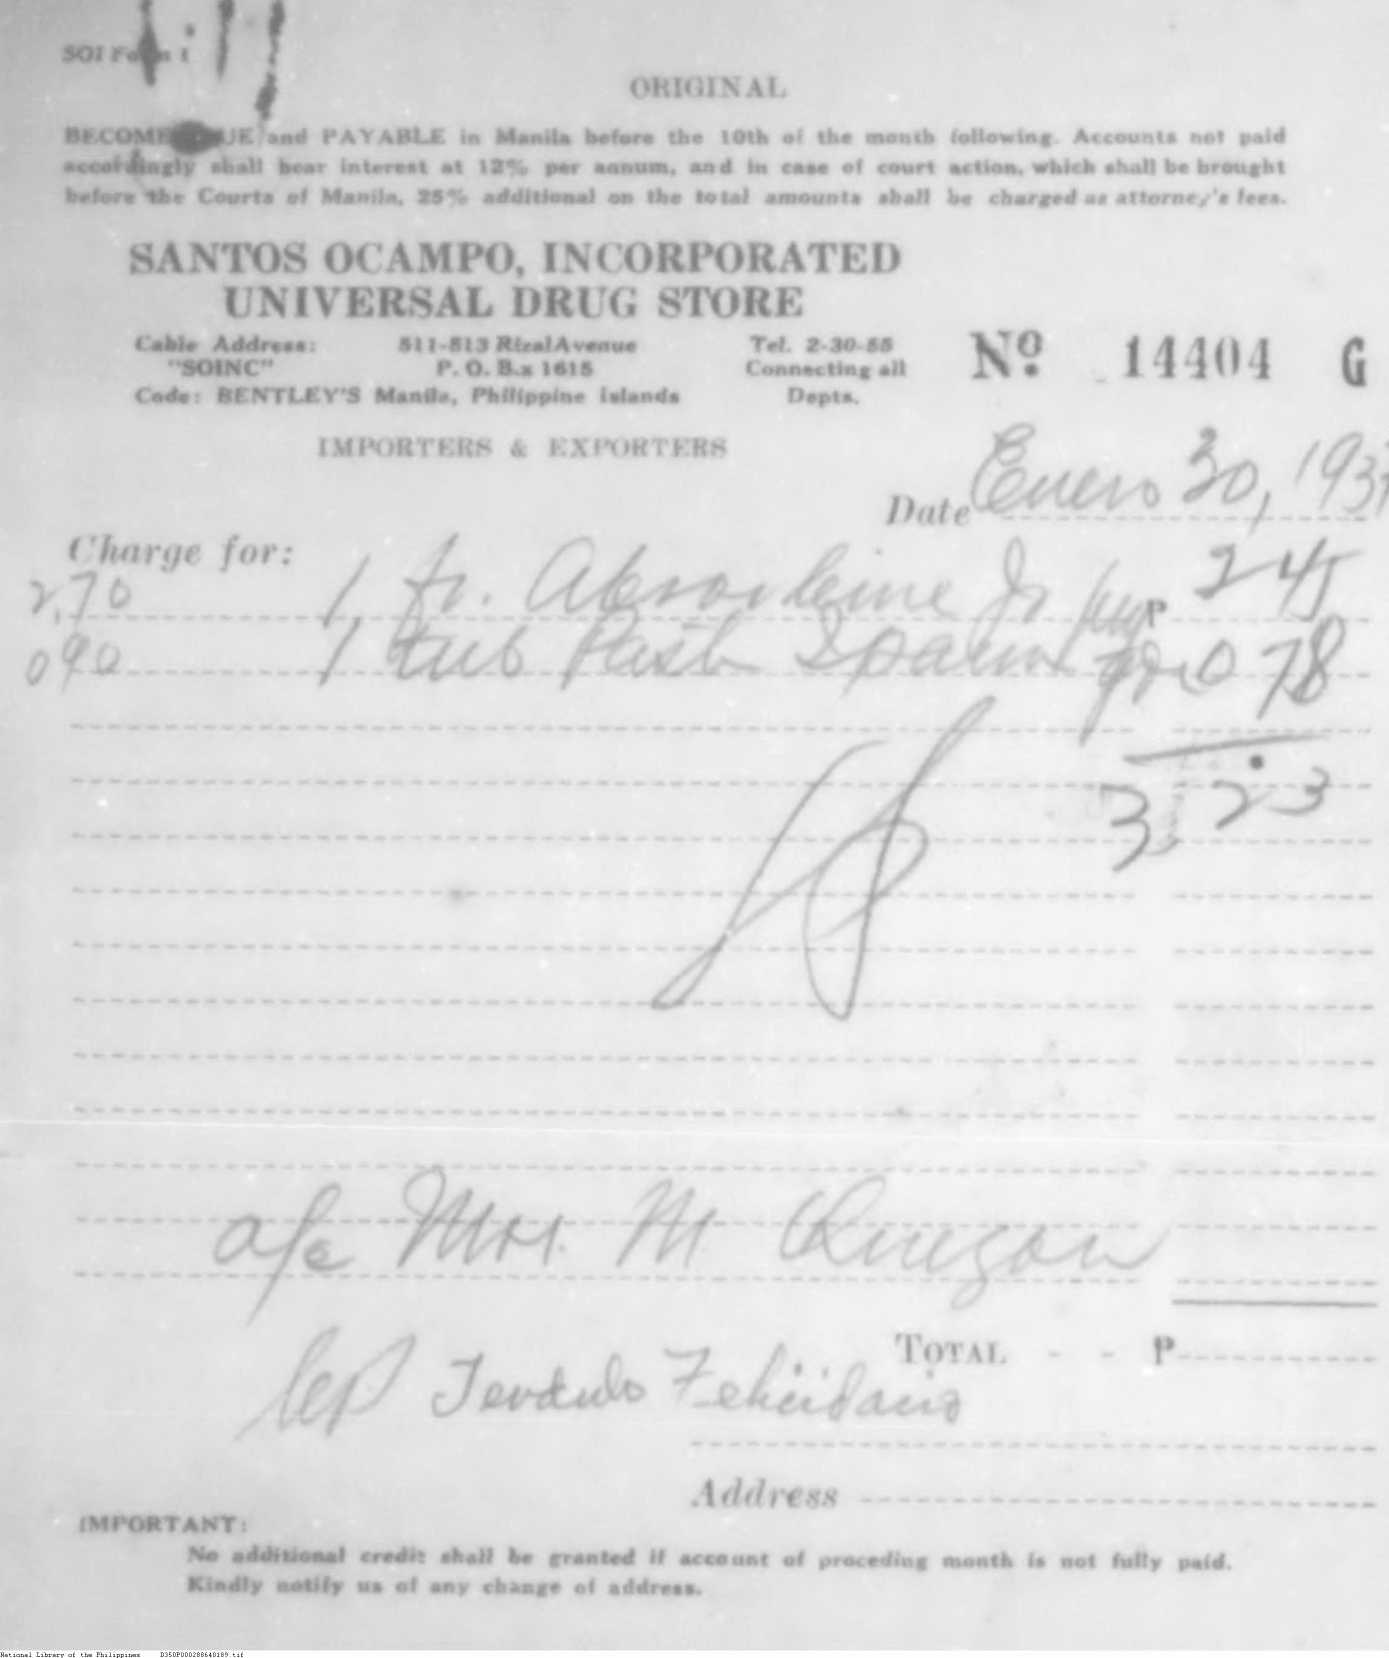 SOI Form 1
ORIGINAL
BECOME DUE and PAYABLE in Manila before the 10th of the month following. Accounts not paid
accordingly shall bear interest at 12% per annum, and in case of court action, which shall be brought
before the Courts of Manila, 25% additional on the total amounts shall be charged as attorney's fees.
SANTOS OCAMPO, INCORPORATED
UNIVERSAL DRUG STORE
Cable Address: 511-513 Rizal Avenue Tel. 2-30-55
"SOINC" P. O. B.x 1615 Connecting all
Code: BENTLEY'S Manila, Philippine Islands Depts.
No. 14404 G
IMPORTERS & EXPORTERS
Date Enero 30, 193
Charge for:
2,70 1 fr. Absorbine Jr P 2 45
0 90 1 tub Past 0 78
3.23
a/c Mrs. M Quezon
Teodulo Feliciano
TOTAL - - P
Address
IMPORTANT:
No additional credit shall be granted if account of proceding month is not fully paid.
Kindly notify us of any change of address.
National Library of the Philippines D350P000288640189.tif